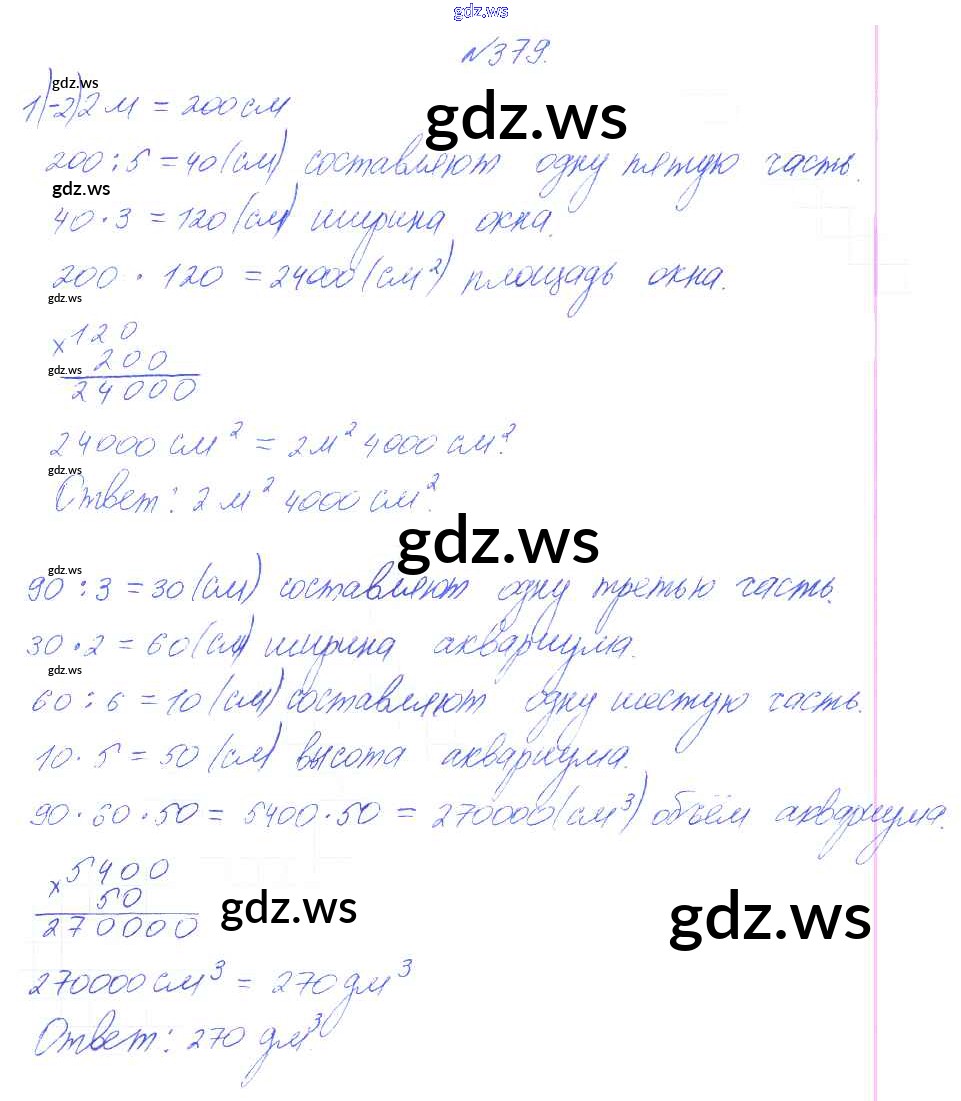 gdz.ws
N379.
gdz.ws
1)-2) 2 м = 200 см
gdz.ws
200 : 5 = 40 (см) составляют одну пятую часть.
gdz.ws
40 · 3 = 120 (см) ширина окна.
200 · 120 = 24000 (см²) площадь окна.
gdz.ws
× 120
200
gdz.ws
24000
24000 см² = 2 м² 4000 см².
gdz.ws
Ответ: 2 м² 4000 см².
gdz.ws
gdz.ws
90 : 3 = 30 (см) составляют одну третью часть.
30 · 2 = 60 (см) ширина аквариума.
gdz.ws
60 : 6 = 10 (см) составляют одну шестую часть.
10 · 5 = 50 (см) высота аквариума.
90 · 60 · 50 = 5400 · 50 = 270000 (см³) объём аквариума.
× 5400
50
270000
gdz.ws
gdz.ws
270000 см³ = 270 дм³
Ответ: 270 дм³.